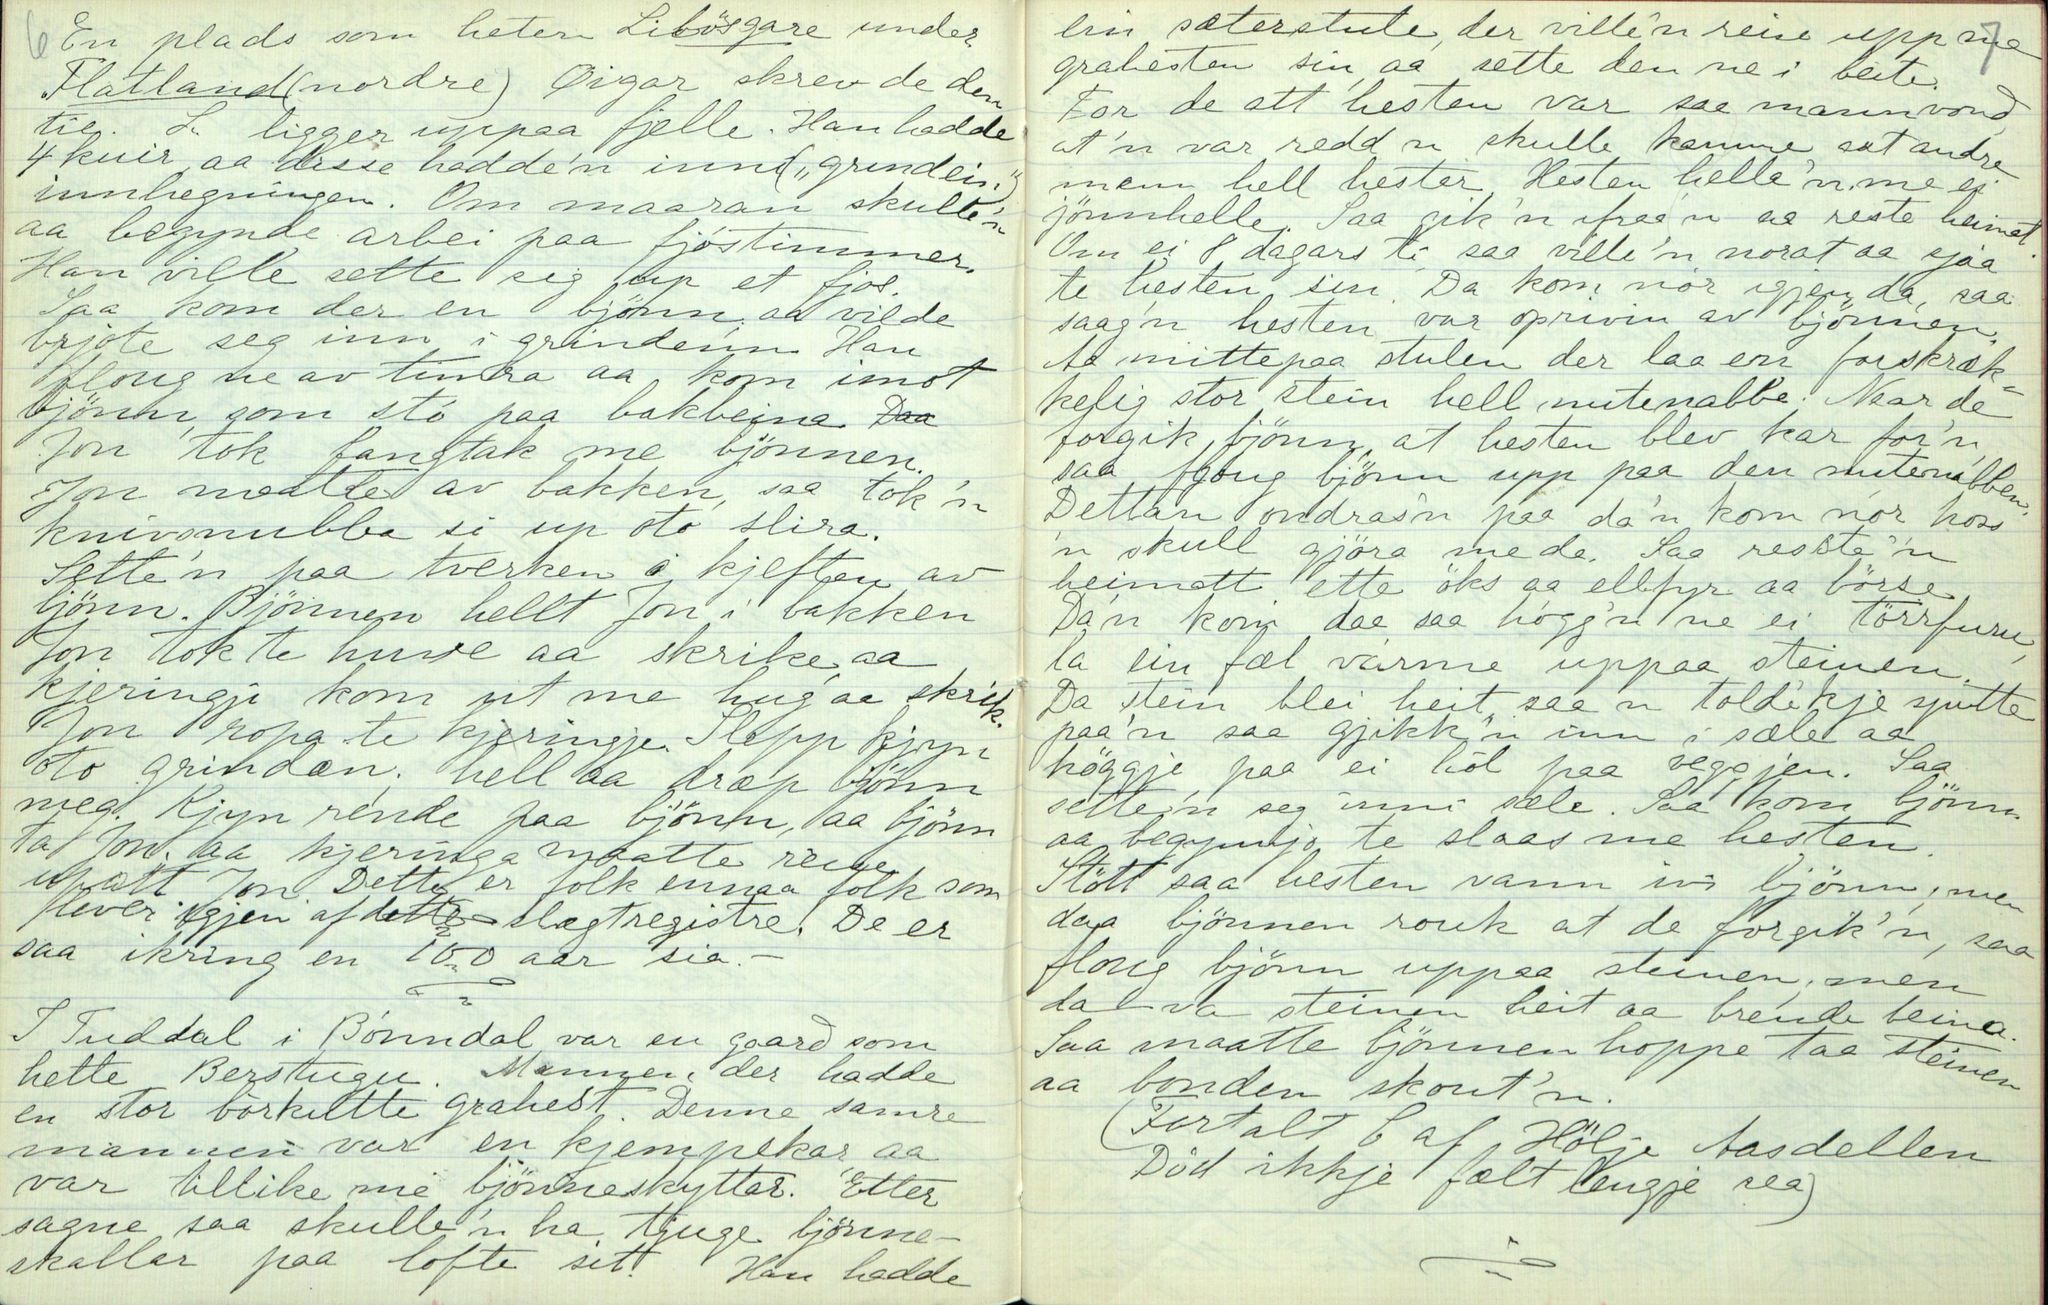 6
En plads som heten Libösgare under
Flatland (nordre) Øigar skrev de den
tie. L. ligger uppaa fjelle. Han hadde
4 kuir, aa disse hadde'n inn („grindein“)
innhegningen. Om maaran skulle'n
aa begynde arbei paa fjöstimmer.
Han ville sette sig up et fjos.
Saa kom der en bjönn aa vilde
brjote seg inn i grindein. Han
floug ne av timra aa kom imot
bjönn, som sto paa bakbeina Daa
Jon tok fangtak me bjönnen.
Jon maatte av bakken, saa tok'n
knivsnubba si up oto slira.
Sette'n paa tverken i kjeften av
bjönn. Bjönnen hellt Jon i bakken
Jon tok te huse aa skrike, aa
kjeringji kom ut me hug aa skrik.
Jon ropa te kjeringje. Slepp kjyn
oto grindæn, hell aa dræp bjönn
meg. Kjyn rende paa bjönn, aa bjönn
ta Jon, aa kjeringa maatte reise
up att Jon. Dette er folk ennaa folk som
lever igjen af dette slægtregistre. De er
saa ikring en 150 aar sia.—
I Tuddal i Bönndal var en gaard som
hette Berstugu. Mannen der hadde
en stor börkutte grahest. Denne samre
mannen var en kjempekar aa
var tillike me bjönneskyttar. Etter
sagne saa skulle'n ha tjuge bjönne-
skallar paa lofte sit. Han hadde
7
ein sæterstule, der ville'n reise upp me
grahesten sin, aa sette den ne i beite.
For de att hesten var saa mannvond,
at'n var redd'n skulle komme sat andre
menn hell hester. Hesten helle'n me ei
jönnhelle. Saa gik'n ifraa'n aa reste heimat.
Om ei 8 dagars ti, saa ville'n norat aa sjaa
te hesten sin. Da kom nor igjen da, saa
saag'n hesten var oprivin av bjönnen.
Aa mittepaa stulen der laa en forskræk-
kelig stor stein hell nutenabbe. Naar de
forgik bjönn, at hesten blev kar for'n,
saa floug bjönn upp paa den nutenabben.
Dettan ondras'n paa da'n kom nór hoss
'n skull gjöra me de. Saa resste'n
heimatt ette öks aa ellfyr aa börse
Da'n kom daa saa hogg'n ne ei törrfuru,
la ein fæl varme uppaa steinen.
Da stein blei heit, saa'n told'ikje sputte
paa'n saa gjikk'n inn i sæle aa
höggje paa ei hol paa veggjen. Saa
sette'n seg inni sæle. Saa kom bjönn
aa begynnjo te slaas me hesten.
Stött saa hesten vann ivi bjönn, men
daa bjönnen rouk at de forgik'n, saa
floug bjönn uppaa steinen, men
da va steinen heit aa brende beina.
Saa maatte bjönnen hoppe taa steinen
aa bonden skout'n.
(Fortalt af Hölje Aasdellen
Död ikkje fælt lengje sea)